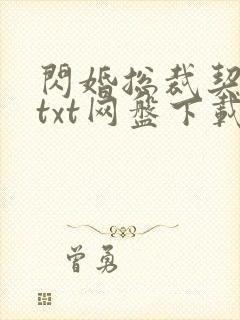 閃婚總裁契
txt网盘下載
曾勇